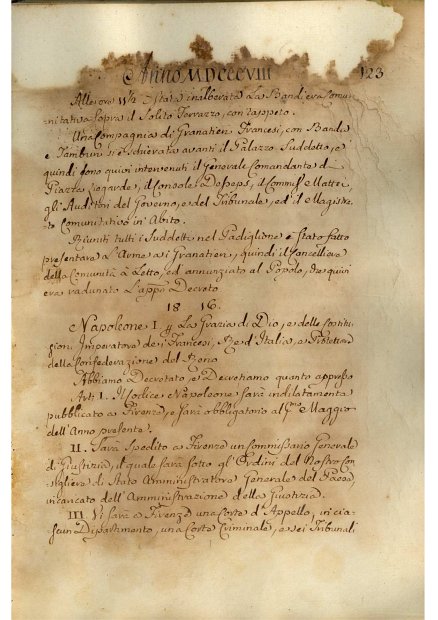 Anno MDCCCVIII 123
Alle ore 11½ è stata inalberata la Bandiera Comu=
=nitativa sopra il solito Terrazzo, con tappeto.
Una Compagnia di Granatieri Francesi, con Banda
e Tamburi si è schierata avanti il Palazzo suddetto, e
quindi sono quivi intervenuti il Generale Comandante di
Piazza il Console il Commiss. Mattei,
gli Auditori del Governo, e del Tribunale, ed il Magistra=
to Comunitativo in Abito.
Riuniti tutti i suddetti nel Padiglione è stato fatto
presentare l'Arme a i Granatieri, quindi il Cancelliere
della Comunità à Letto, ed annunziato al Popolo, che quivi
era radunato l'app.º Decreto
18 16.
Napoleone I La Grazia di Dio, e delle Costitu=
zioni Imperatore de i Francesi, Re d'Italia, e Protettore
della Confederazione del Reno
Abbiamo Decretato, e Decretiamo quanto appresso
Art: I. Il Codice Napoleone sarà indilatamente
pubblicato a Firenze, e sarà obbligatorio al P.mo Maggio
dell'Anno presente.
II. Sarà Spedito a Firenze un Commissario Generale
di Giustizia, il quale sarà sotto gl'Ordini del Nostro Con=
sigliere di Stato Amministratore Generale del Paese
incaricato dell'Amministrazione della Giustizia.
III. Vi sarà a Firenze una Corte d'Appello, in cia=
scun Dipartimento, una Corte Criminale, e sei Tribunali